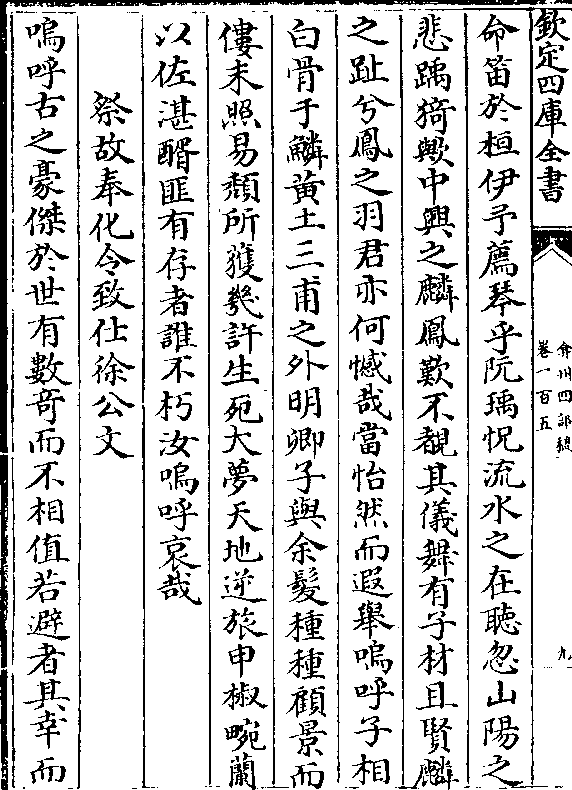 欽定四庫全書
弇州四部稿
卷一百五
九
命笛於桓伊予薦琴乎阮瑀怳流水之在聽忽山陽之
悲踽猗歟中興之麟鳳歎不覩其儀舞有子材且賢麟
之趾兮鳳之羽君亦何憾哉當怡然而遐舉嗚呼子相
白骨于鱗黄土三甫之外明卿子與余髮種種顧景而
僂末照易頽所獲幾許生死大夢天地逆旅申椒畹蘭
以佐湛醑匪有存者誰不朽汝嗚呼哀哉
祭故奉化令致仕徐公文
嗚呼古之豪傑於世有數竒而不相值若避者其幸而